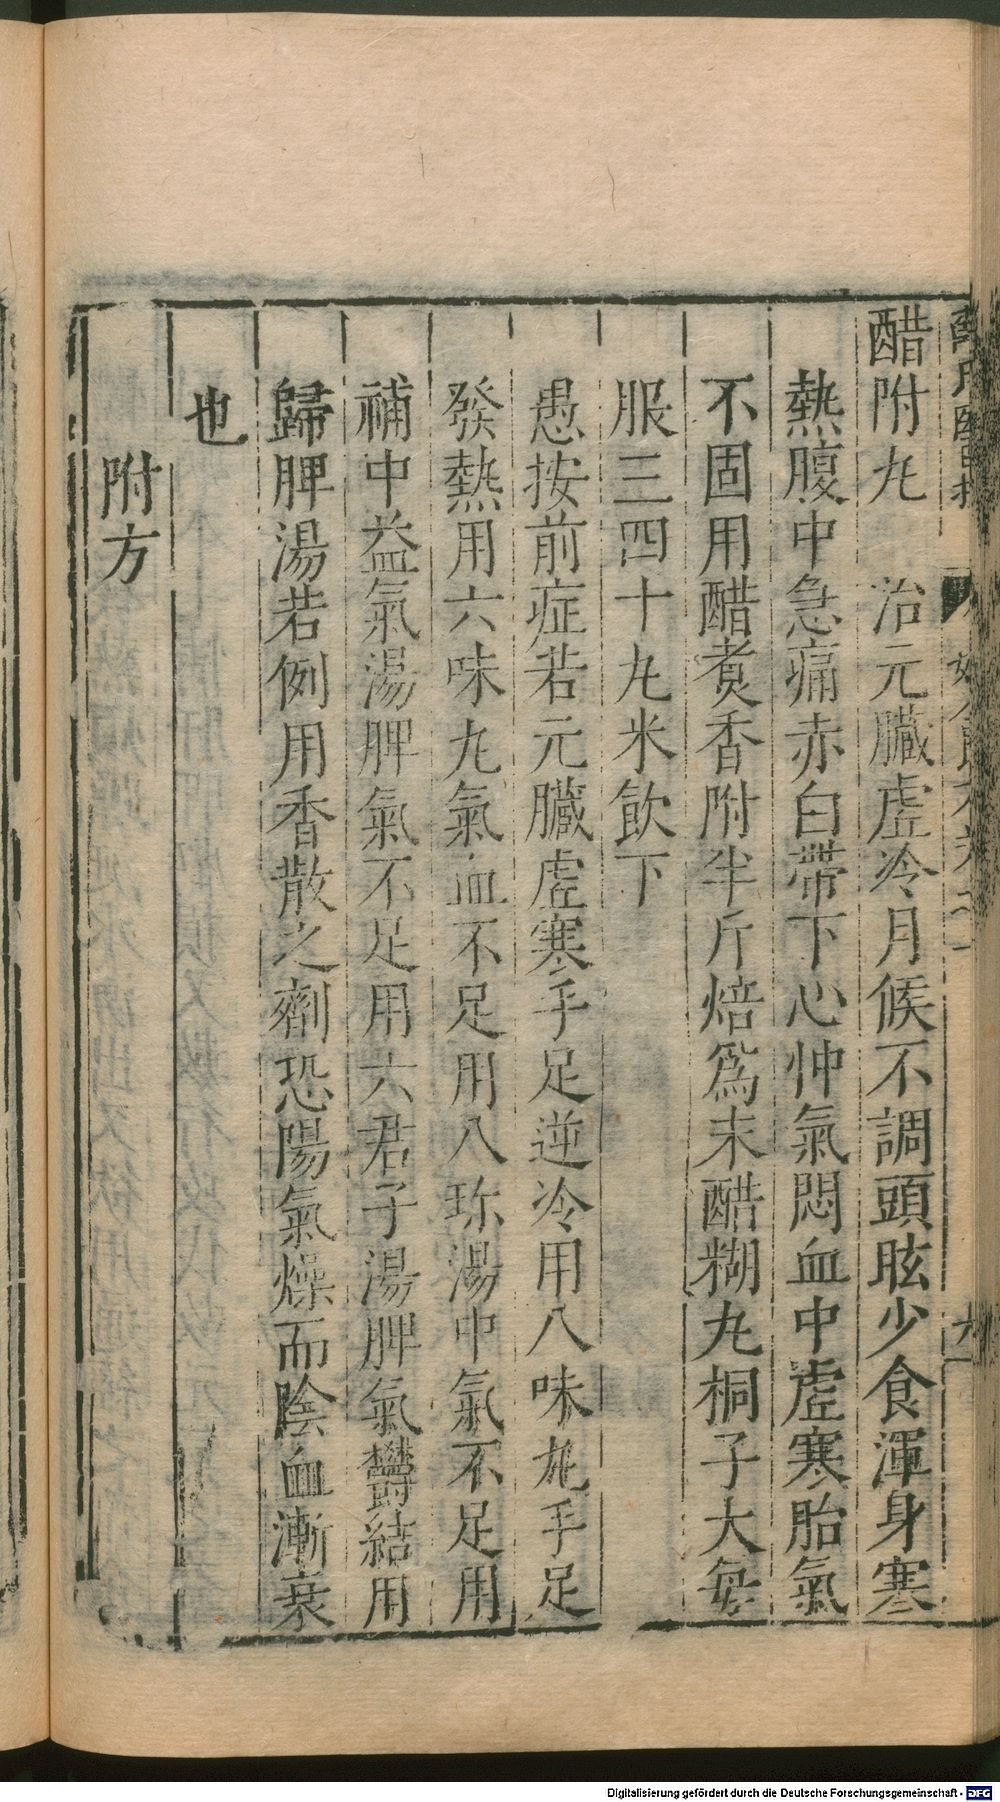 醋附丸　治元臟虛冷月候不調頭眩少食渾身寒
熱腹中急痛赤白帶下心忡氣悶血中虛寒胎氣
不固用醋煑香附半斤焙爲末醋糊丸桐子大每
服三四十丸米飲下
愚按前症若元臟虛寒手足逆冷用八味丸手足
發熱用六味丸氣血不足用八珎湯中氣不足用
補中益氣湯脾氣不足用六君子湯脾氣欝結用
歸脾湯若例用香散之劑恐陽氣燥而陰血漸衰
也
附方
Digitalisierung gefördert durch die Deutsche Forschungsgemeinschaft - DFG